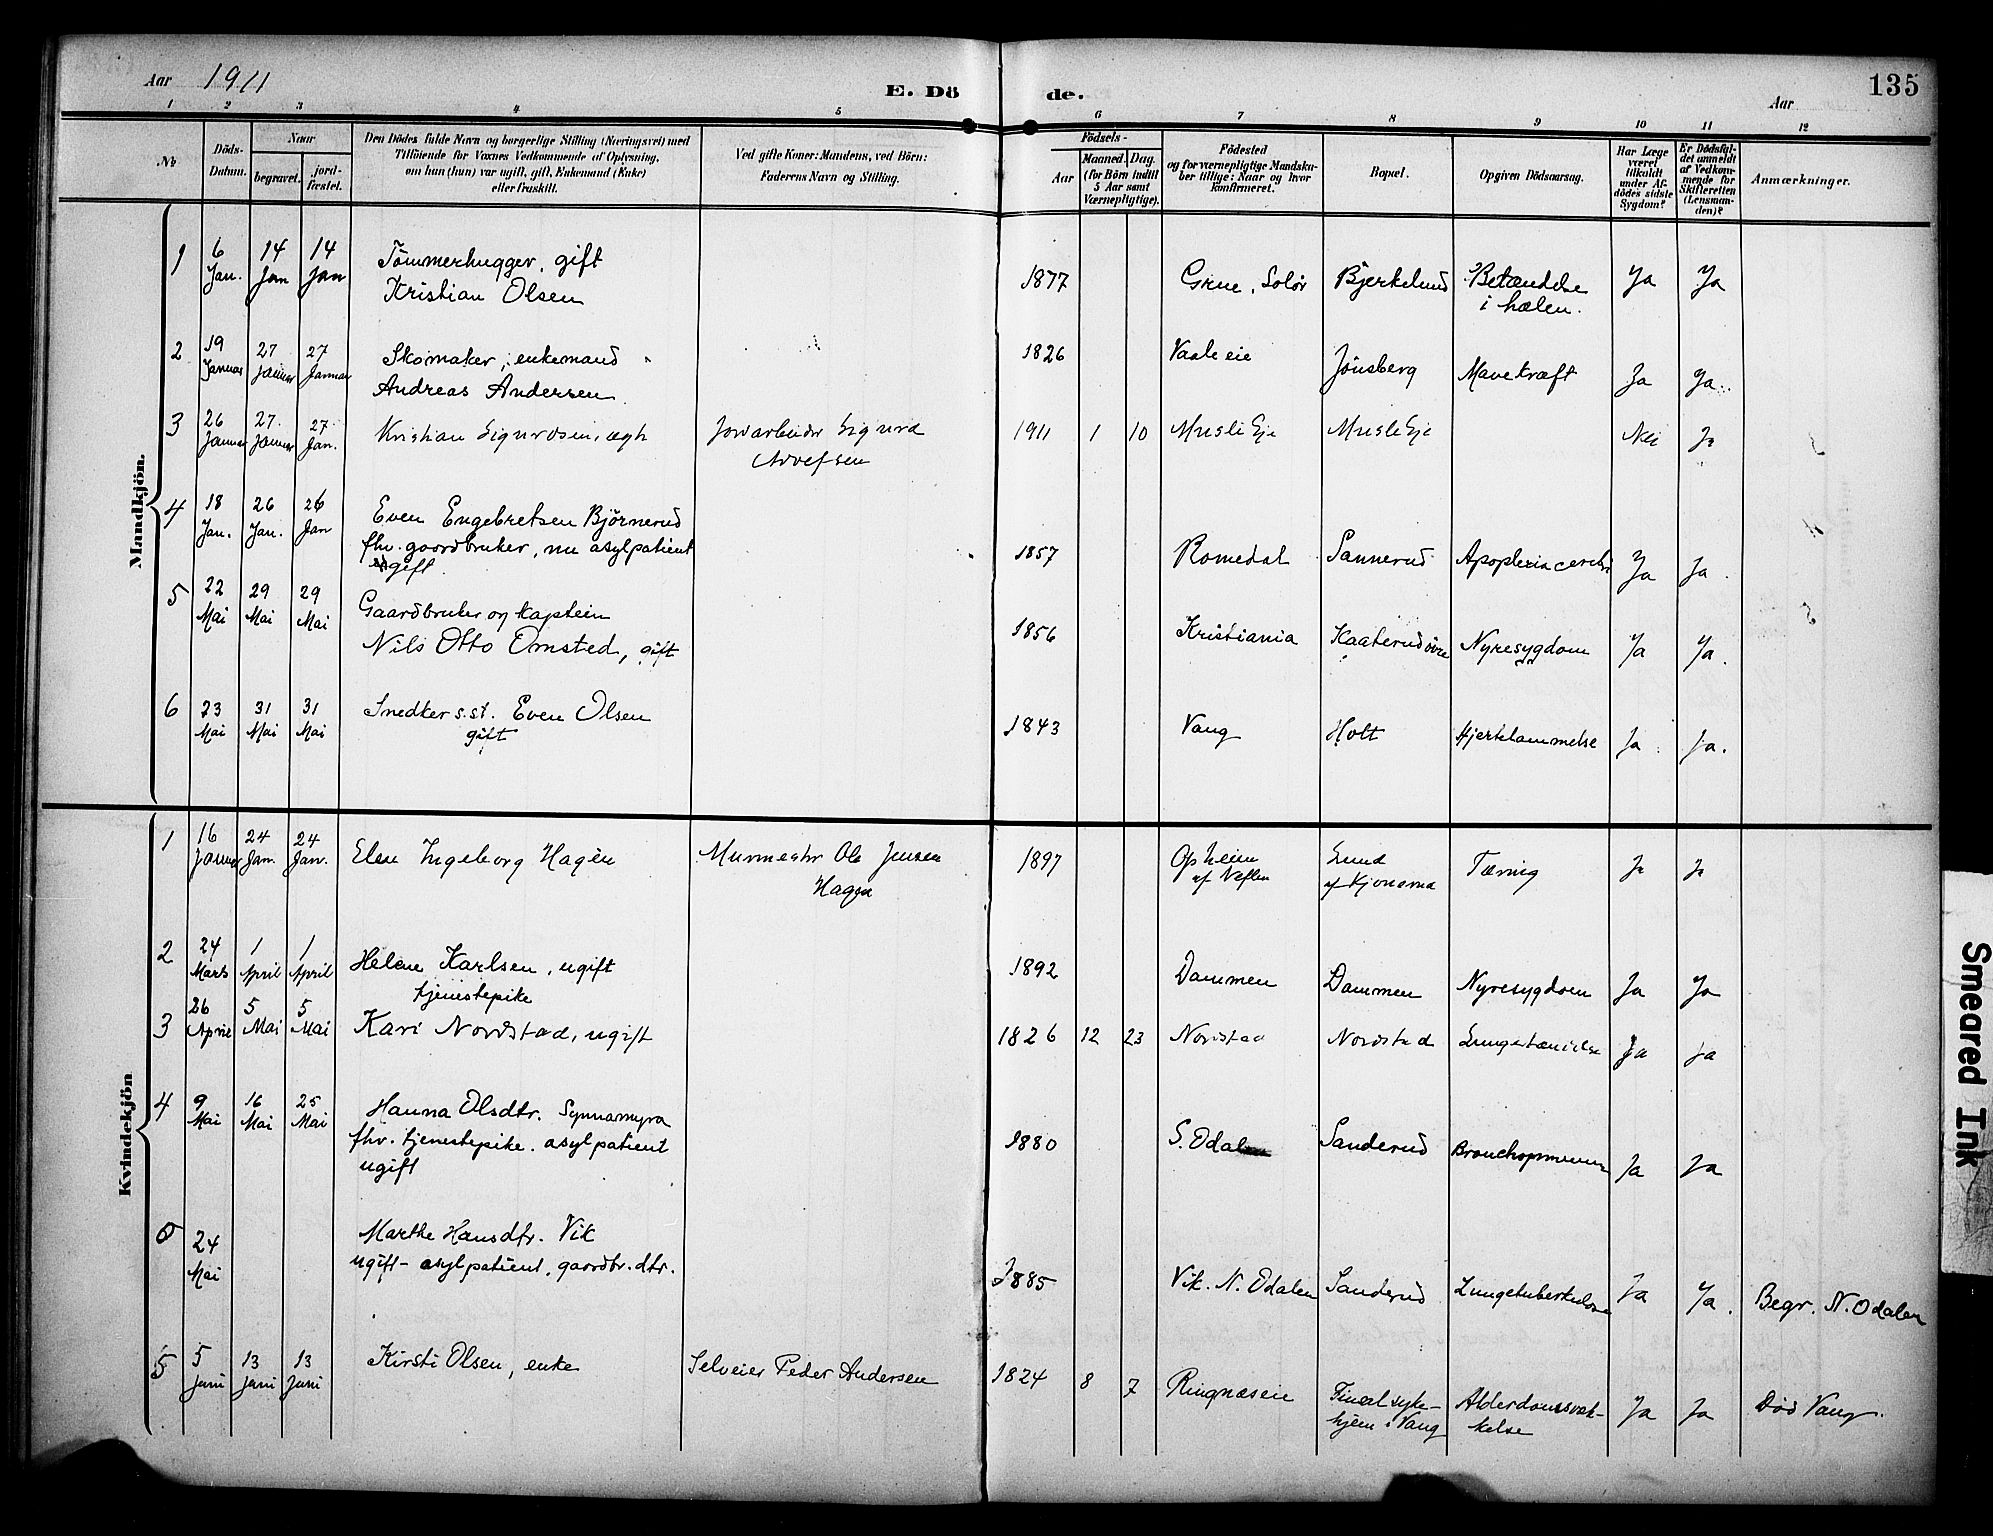 Aar 1911
E. Dö de.
Aar
135
1 2 3 4 5 6 7 8 9 10 11 12
No
Döds-
Datum.
Naar
begravet.
jord-
fæstet.
Den Dödes fulde Navn og borgerlige Stilling (Næringsvei) med
Tilföiende for Voxnes Vedkommende af Oplysning,
om han (hun) var ugift, gift, Enkemand (Enke)
eller fraskilt.
Ved gifte Koner: Mandens, ved Börn:
Faderens Navn og Stilling.
Födsels-
Aar
Maaned. Dag.
(for Börn indtil
5 Aar samt
Værnepligtige).
Födested
og for værnepligtige Mandska-
ber tillige: Naar og hvor
konfirmeret.
Bopæl.
Opgiven Dödsaarsag.
Har Læge
været
tilkaldt
under Af-
dödes sidste
Sygdom?
Er Dödsfal-
det anmeldt
af Vedkom-
mende for
Skifteretten
(Lensman-
den)?
Anmærkninger.
Mandkjön.
1 6 Jan. 14 Jan 14 Jan Tömmerhugger, gift
Kristian Olsen
1877 Grue, Solör Bjerkelund Betændelse
i hælen. Ja Ja
2 19 Januar 27 Januar 27 Januar Skomaker, enkemand
Andreas Andersen
1826 Vaale eie Jönsberg Mavekræft Ja Ja
3 26 Januar 27. Januar 27. Jan. Kristian Sigurdsen, ægh Jordarbeider Sigurd
1911 1 10 Musli Eje Musli Eje Nei Ja
4 18 Jan. 26 Jan. 26 Jan Even Engebretsen Björnerud
fhv. gaardbruker, nu asylpatient
gift
1857 Romedal Sannerud Apoplexia cerebri Ja Ja
5 22 Mai 29 Mai 29 Mai Gaardbruker og kaptein
Nils Otto Omsted, gift
1856 Kristiania Kaaterud övre Nyresygdom Ja Ja.
6 23 Mai 31 Mai 31 Mai Snedker s.st. Even Olsen
gift
1843 Vang Holt Hjertelammelse Ja Ja.
Kvindekjön
1 16 Januar 24 Jan. 24 Jan. Elen Ingeborg Hagen Murmester Ole Jensen
Hagen
1897 Opheim
af Neflen Lund
af Kjonerud Tæring Ja Ja
2 24 Mars 1 April 1 April Helene Karlsen, ugift
tjenestepike
1892 Dammen Dammen Nyresygdom Ja Ja
3 26 April 5 Mai 5 Mai Kari Nordstad, ugift
1826 12 23 Nordstad Nordstad Lungebetændelse Ja Ja
4 9 Mai 16 Mai 25 Mai Hanna Olsdtr. Synnamyra
fhv. tjenestepike. asylpatient
ugift
1880 S. Odalen Sanderud Bronchopneumoni Ja Ja
5 24 Mai Marthe Hansdtr. Vik
ugift - asylpatient, gaardbr. dtr.
1885 Vik. N. Odalen Sanderud Lungetuberkulose Ja Ja. Begr. N. Odalen
5 5 Juni 13 Juni 13 Juni Kirsti Olsen, enke Selveier Peder Andersen
1824 8 7 Ringnæseie Finsal syke-
hjem i Vang Alderdomssvæk-
kelse Ja Ja Död Vang.
Smeared Ink